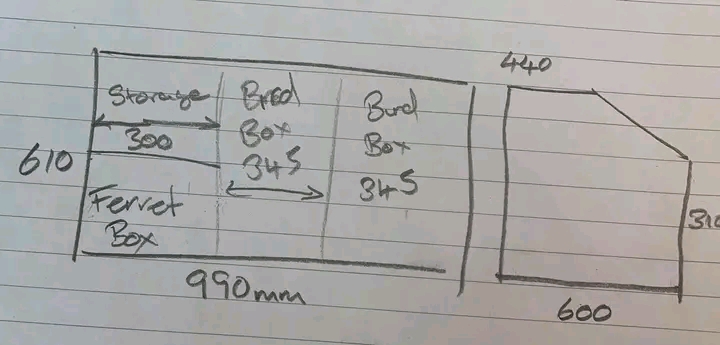 440
Storage
300
610
Ferret
Box
Bird
Box
345
Bird
Box
345
310
990mm
600